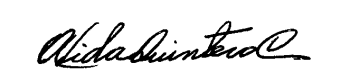 Alida Quintero C.